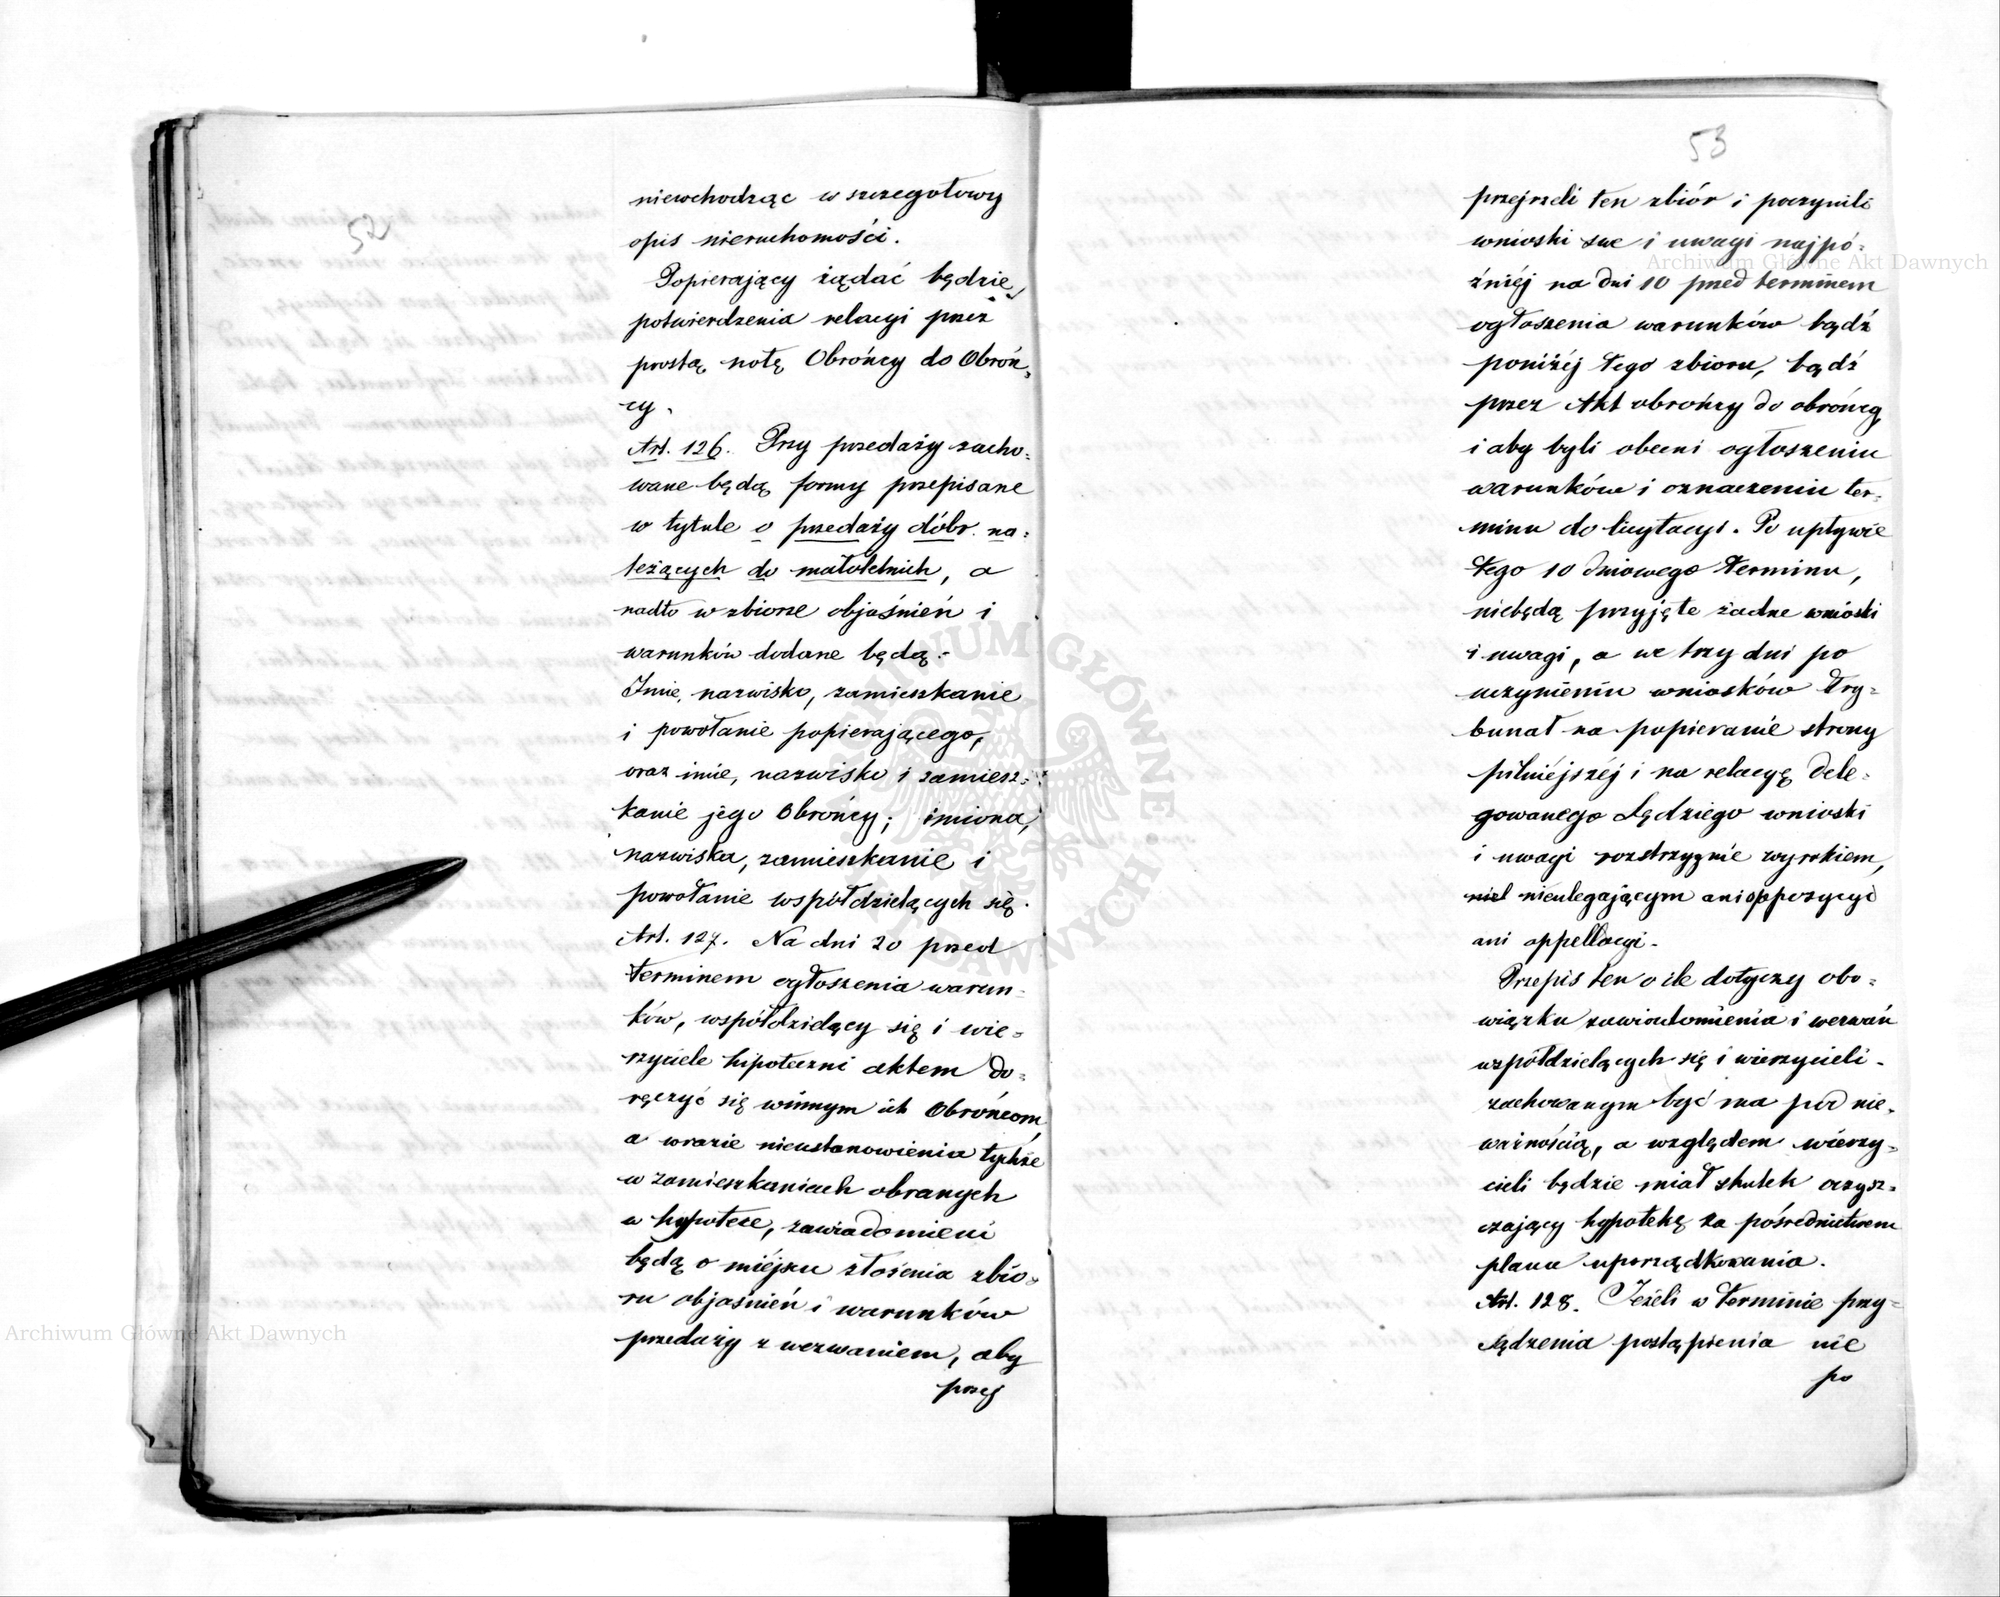 52
niewchodząc w szczegołowy
opis nieruchomości.
Popierający żądać będzie,
potwierdzenia relacyi przez
prostą notę Obrońcy do Obroń=
cy.
Art. 126. Przy przedaży zacho=
wane będą formy przepisane
w tytule o przedaży dóbr na=
leżących do małoletnich, a
nadto w zbiorze objaśnień i
warunków dodane będą:
Imie, nazwisko, zamieszkanie
i powołanie popierającego,
oraz imie, nazwisko i zamiesz=
kanie jego Obrońcy; imiona,
nazwiska, zamieszkanie i
powołanie współdzielących się.
Art. 127. Na dni 20 przed
terminem ogłoszenia warun=
ków, współdzielący się i wie=
rzyciele hipoteczni aktem do=
ręczyć się winnym ich Obrońcom
a wrazie nieustanowienia tychże
w zamieszkaniach obranych
w hypotece, zawiadomieni
będą o miéjscu złożenia zbio=
ru objaśnień i warunków
przedaży z wezwaniem, aby
przej
53
przejrzeli ten zbiór i poczynili
wnioski swe i uwagi najpó=
źniéj na dni 10 przed terminem
ogłoszenia warunków bądź
poniżéj tego zbioru, bądź
przez Akt obrońcy do obrońcy,
i aby byli obecni ogłoszeniu
warunków i oznaczeniu ter=
minu do licytacyi. Po upływie
tego 10 dniowego terminu,
niebędą przyjęte żadne wnioski
i uwagi, a we trzy dni po
uczynieniu wniosków Try=
bunał na popieranie strony
pilniéjszéj i na relacyę dele=
gowanego Sędziego wnioski
i uwagi rozstrzygnie wyrokiem,
nieulegającym ani oppozycyi
ani appellacyi.
Przepis ten o ile dotyczy obo=
wiązku zawiadomienia i wezwań
współdzielących się i wierzycieli
zachowanym być ma pod nie=
ważnością, a względem wierzy=
cieli będzie miał skutek oczysz=
czający hypotekę za pośrednictwem
planu uporządkowania.
Art. 128. Jeżeli w terminie przy=
sądzenia postąpienia nie
po
Archiwum Główne Akt Dawnych
Archiwum Główne Akt Dawnych
ARCHIWUM GŁÓWNE AKT DAWNYCH